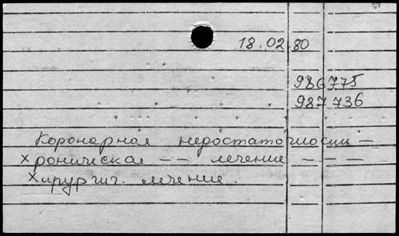 18.02.80
986775
987736
Коронарная недостаточность —
хроническая –– лечение – – –
Хирургич. лечение.